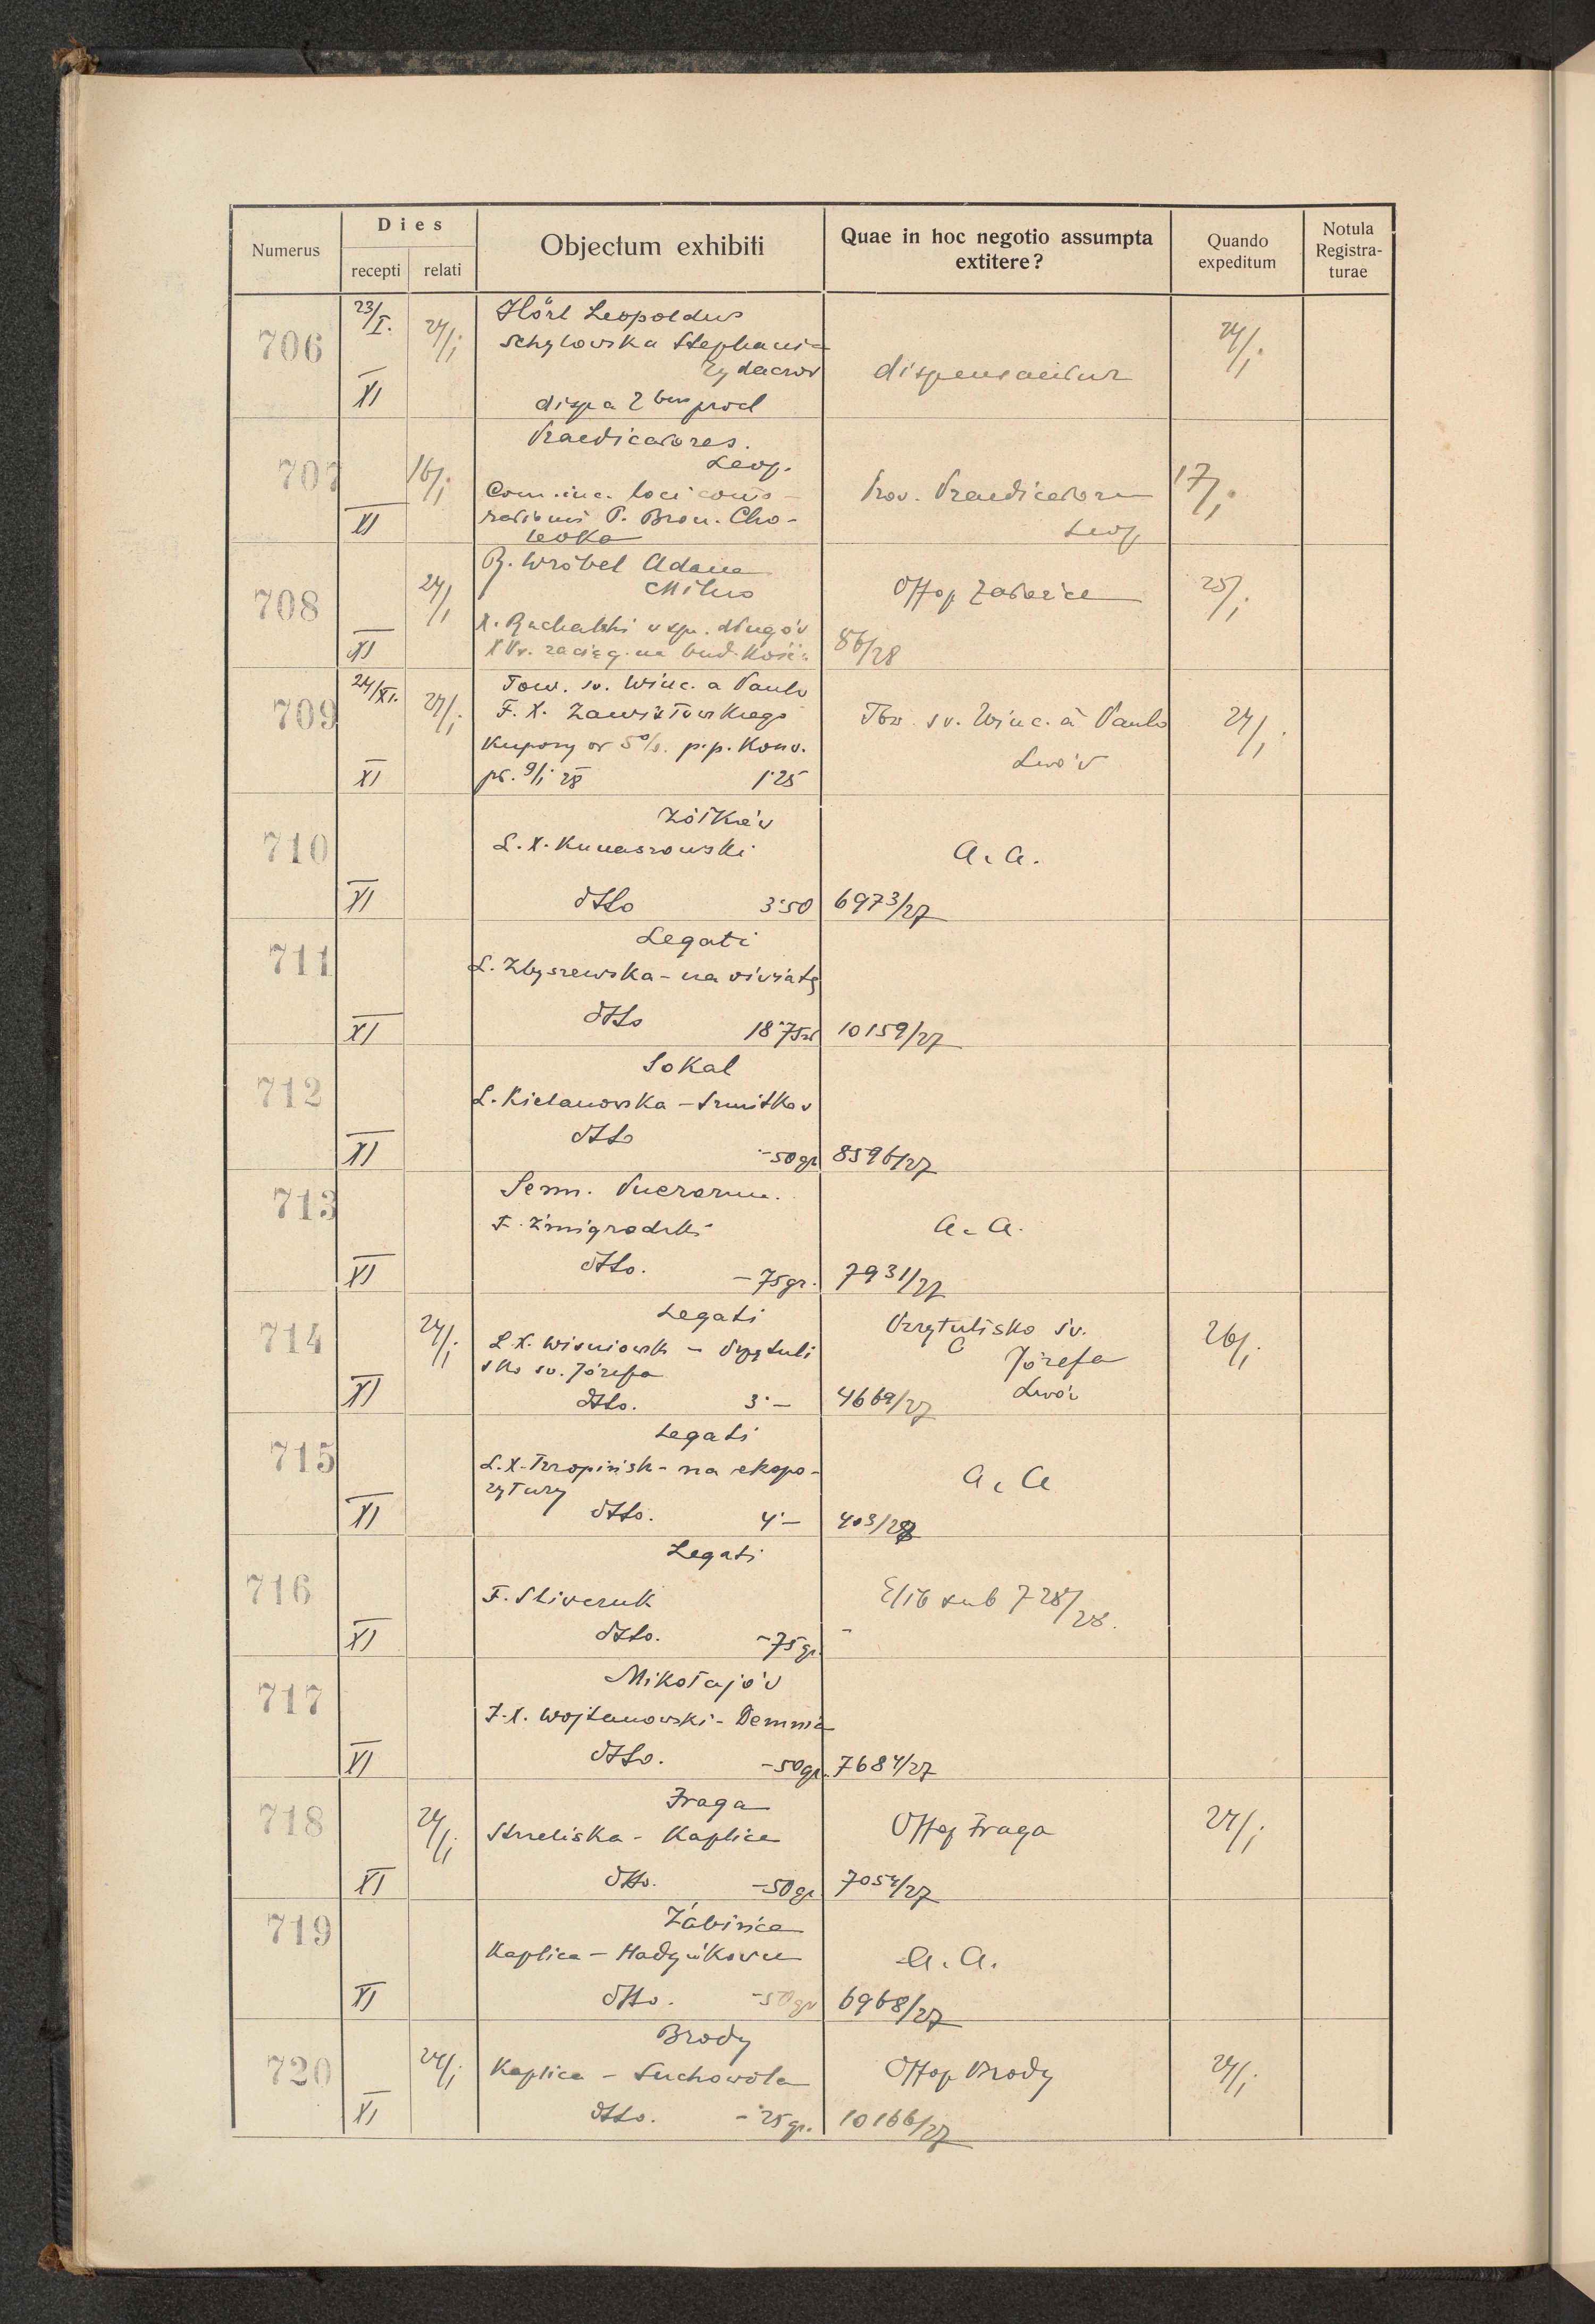 Numerus
Dies
recepti relati
Objectum exhibiti
Quae in hoc negotio assumpta
extitere?
Quando
expeditum
Notula
Registra-
turae
706
23/I.
24/I
XI
Hörl Leopoldus
Schylowska Stephania
Żydaczów
disp a 2 bus procl
dispensantur
24/I
707
16/I
XI
Praedicatores.
Leop.
Prov. Praedicatorum
Leop
17/I
708
24/I
XI
R. Wróbel Adam
Milno
X. Rachalski w spr. długów
86/28
25/I
709
24/XI.
24/I
XI
Tow. św. Winc. a Paulo
F. X. Zawistowskiego
Kupony od 5% p.p. Konw.
pł. 9/I 28 1·25
Tow. św. Winc. à Paulo
Lwów
24/I
710
XI
Żółkiew
L. X. Kunaszowski
dtto 3·50
a. a.
6973/27
711
XI
Legati
L. Zbyszewska - na oświatę
dtto 18·75
10159/27
712
XI
Sokal
L. Kielanowska -
dtto -50 gr
8596/27
713
XI
Sem. Puerorum.
F. Żmigrodzki
dtto. -75 gr.
a. a.
7931/27
714
24/I
XI
Legati
L. X. Wiśniowsk - Przytuli
sko św. Józefa
dtto. 3·-
Przytulisko św.
Józefa
Lwów
4669/27
26/I
715
XI
Legati
L. X. - na ekspo-
zytury
dtto. 4·-
a. a
403/28
716
XI
Legati
F. Sliweruk
dtto. -75 gr.
Elib sub 728/28.
717
XI
Mikołajów
F. X. Wojtanowski - Demnia
dtto. -50 gr.
7684/27
718
24/I
XI
Fraga
Strzeliska - Kaplica
dtto. -50 gr
Offop Fraga
7054/27
24/I
719
XI
Żabińce
Kaplica - Hadyńkowce
dtto. -50 gr
a. a.
6968/27
720
24/I
XI
Brody
Kaplica - Suchowola
dtto. -25 gr.
Offop Brody
10166/27
24/I